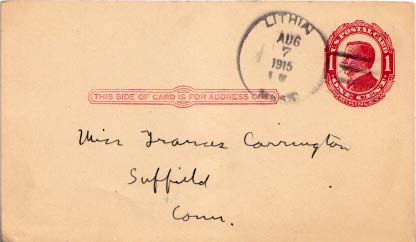 LITHIA
AUG
7
1915
MASS
U.S. POSTAL CARD
1 1
ONE CENT
McKINLEY
THIS SIDE OF CARD IS FOR ADDRESS ONLY
Miss Frances Carrington
Suffield
Conn.